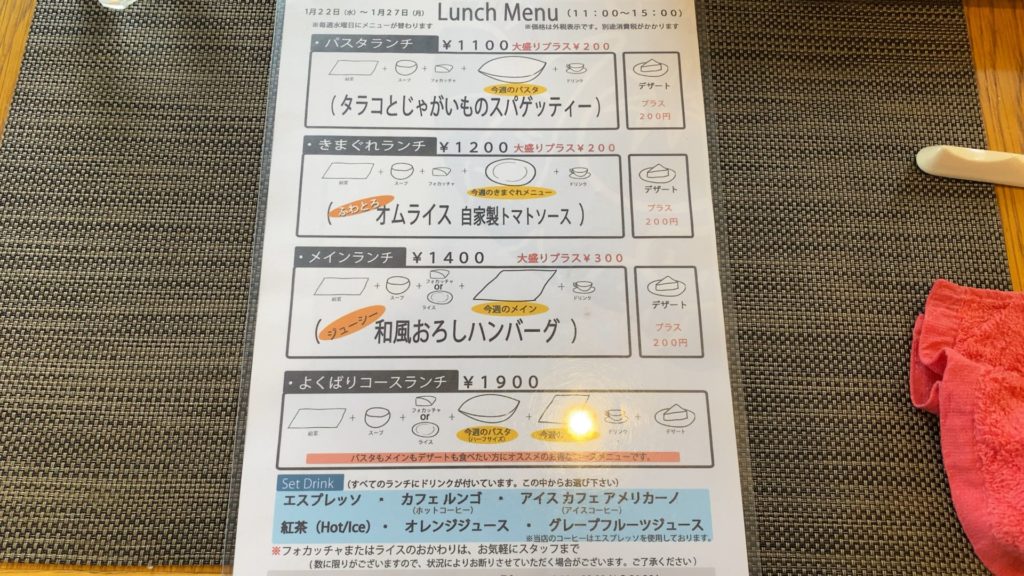 1月22日(水)～1月27日(月) Lunch Menu (11:00～15:00)
※毎週水曜日にメニューが替わります ※価格は外税表示です。別途消費税がかかります
・パスタランチ ￥1100 大盛りプラス￥200
前菜 + スープ + フォカッチャ + 今週のパスタ + ドリンク
デザート
プラス
200円
(タラコとじゃがいものスパゲッティー)
・きまぐれランチ ￥1200 大盛りプラス￥200
前菜 + スープ + フォカッチャ + 今週のきまぐれメニュー + ドリンク
デザート
プラス
200円
(ふわとろ オムライス 自家製トマトソース)
・メインランチ ￥1400 大盛りプラス￥300
前菜 + スープ + フォカッチャ or ライス + 今週のメイン + ドリンク
デザート
プラス
200円
(ジューシー 和風おろしハンバーグ)
・よくばりコースランチ ￥1900
前菜 + スープ + フォカッチャ or ライス + 今週のパスタ (ハーフサイズ) + 今週の + ドリンク + デザート
パスタもメインもデザートも食べたい方にオススメのお得な メニューです。
Set Drink (すべてのランチにドリンクが付いています。この中からお選び下さい)
エスプレッソ ・ カフェ ルンゴ ・ アイス カフェ アメリカーノ
(ホットコーヒー) (アイスコーヒー)
紅茶(Hot/Ice)・ オレンジジュース ・ グレープフルーツジュース
※当店のコーヒーはエスプレッソを使用しております。
※フォカッチャまたはライスのおかわりは、お気軽にスタッフまで
(数に限りがございますので、状況によりお断りさせていただく場合がございます。ご了承ください)